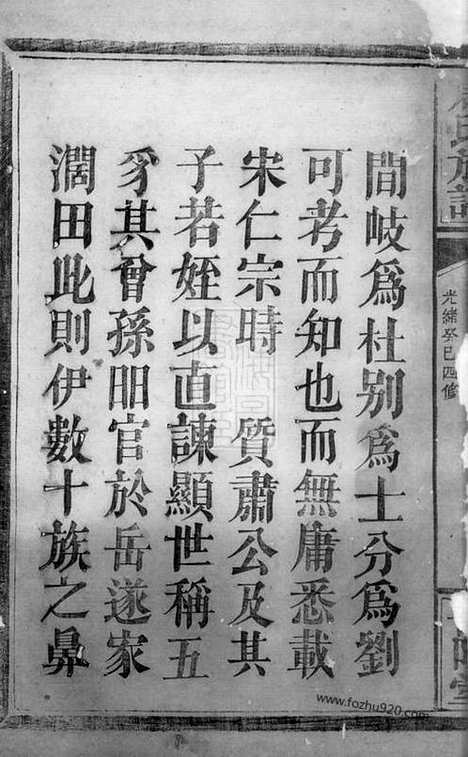 間岐爲杜别爲士分爲劉
可考而知也而無庸悉載
宋仁宗時 質肅公及其
子若姪以直諫顯世稱五
豸其曾孫明官於岳遂家
濶田此則伊數十族之鼻
氏族譜
光緒癸巳四修
www.fozhu920.com